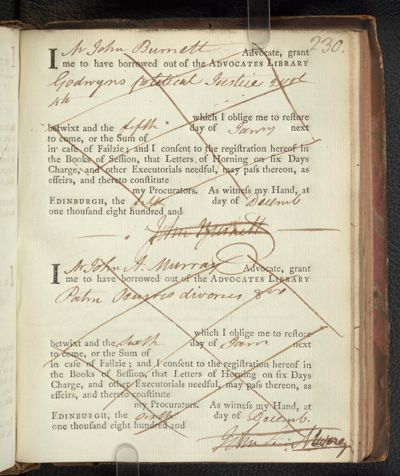 230.
I Mr John Burnett Advocate, grant
me to have borrowed out of the ADVOCATES LIBRARY
Godwyns political Justice 2 vol
4to
which I oblige me to restore
betwixt and the fifth day of Janry next
to come, or the Sum of
in case of Failzie; and I consent to the registration hereof in
the Books of Session, that Letters of Horning on six Days
Charge, and other Executorials needful, may pass thereon, as
effeirs, and thereto constitute
my Procurators. As witness my Hand, at
EDINBURGH, the fifth day of Decemb
one thousand eight hundred and
John Burnett
I Mr John A. Murray Advocate, grant
me to have borrowed out of the ADVOCATES LIBRARY
Palm Oeuvres diverses
which I oblige me to restore
betwixt and the sixth day of Janr next
to come, or the Sum of
in case of Failzie; and I consent to the registration hereof in
the Books of Session, that Letters of Horning on six Days
Charge, and other Executorials needful, may pass thereon, as
effeirs, and thereto constitute
my Procurators. As witness my Hand, at
EDINBURGH, the sixth day of Decemb.
one thousand eight hundred and
John Murray